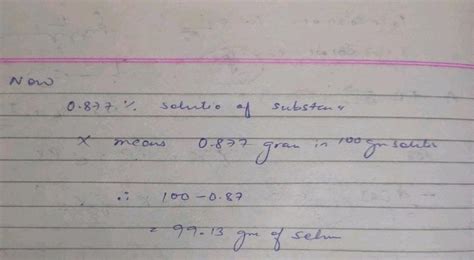 Now
0.877 % solutio of substan
X means 0.877 gram in 100 gm solutio
∴ 100 - 0.87
= 99.13 gm of